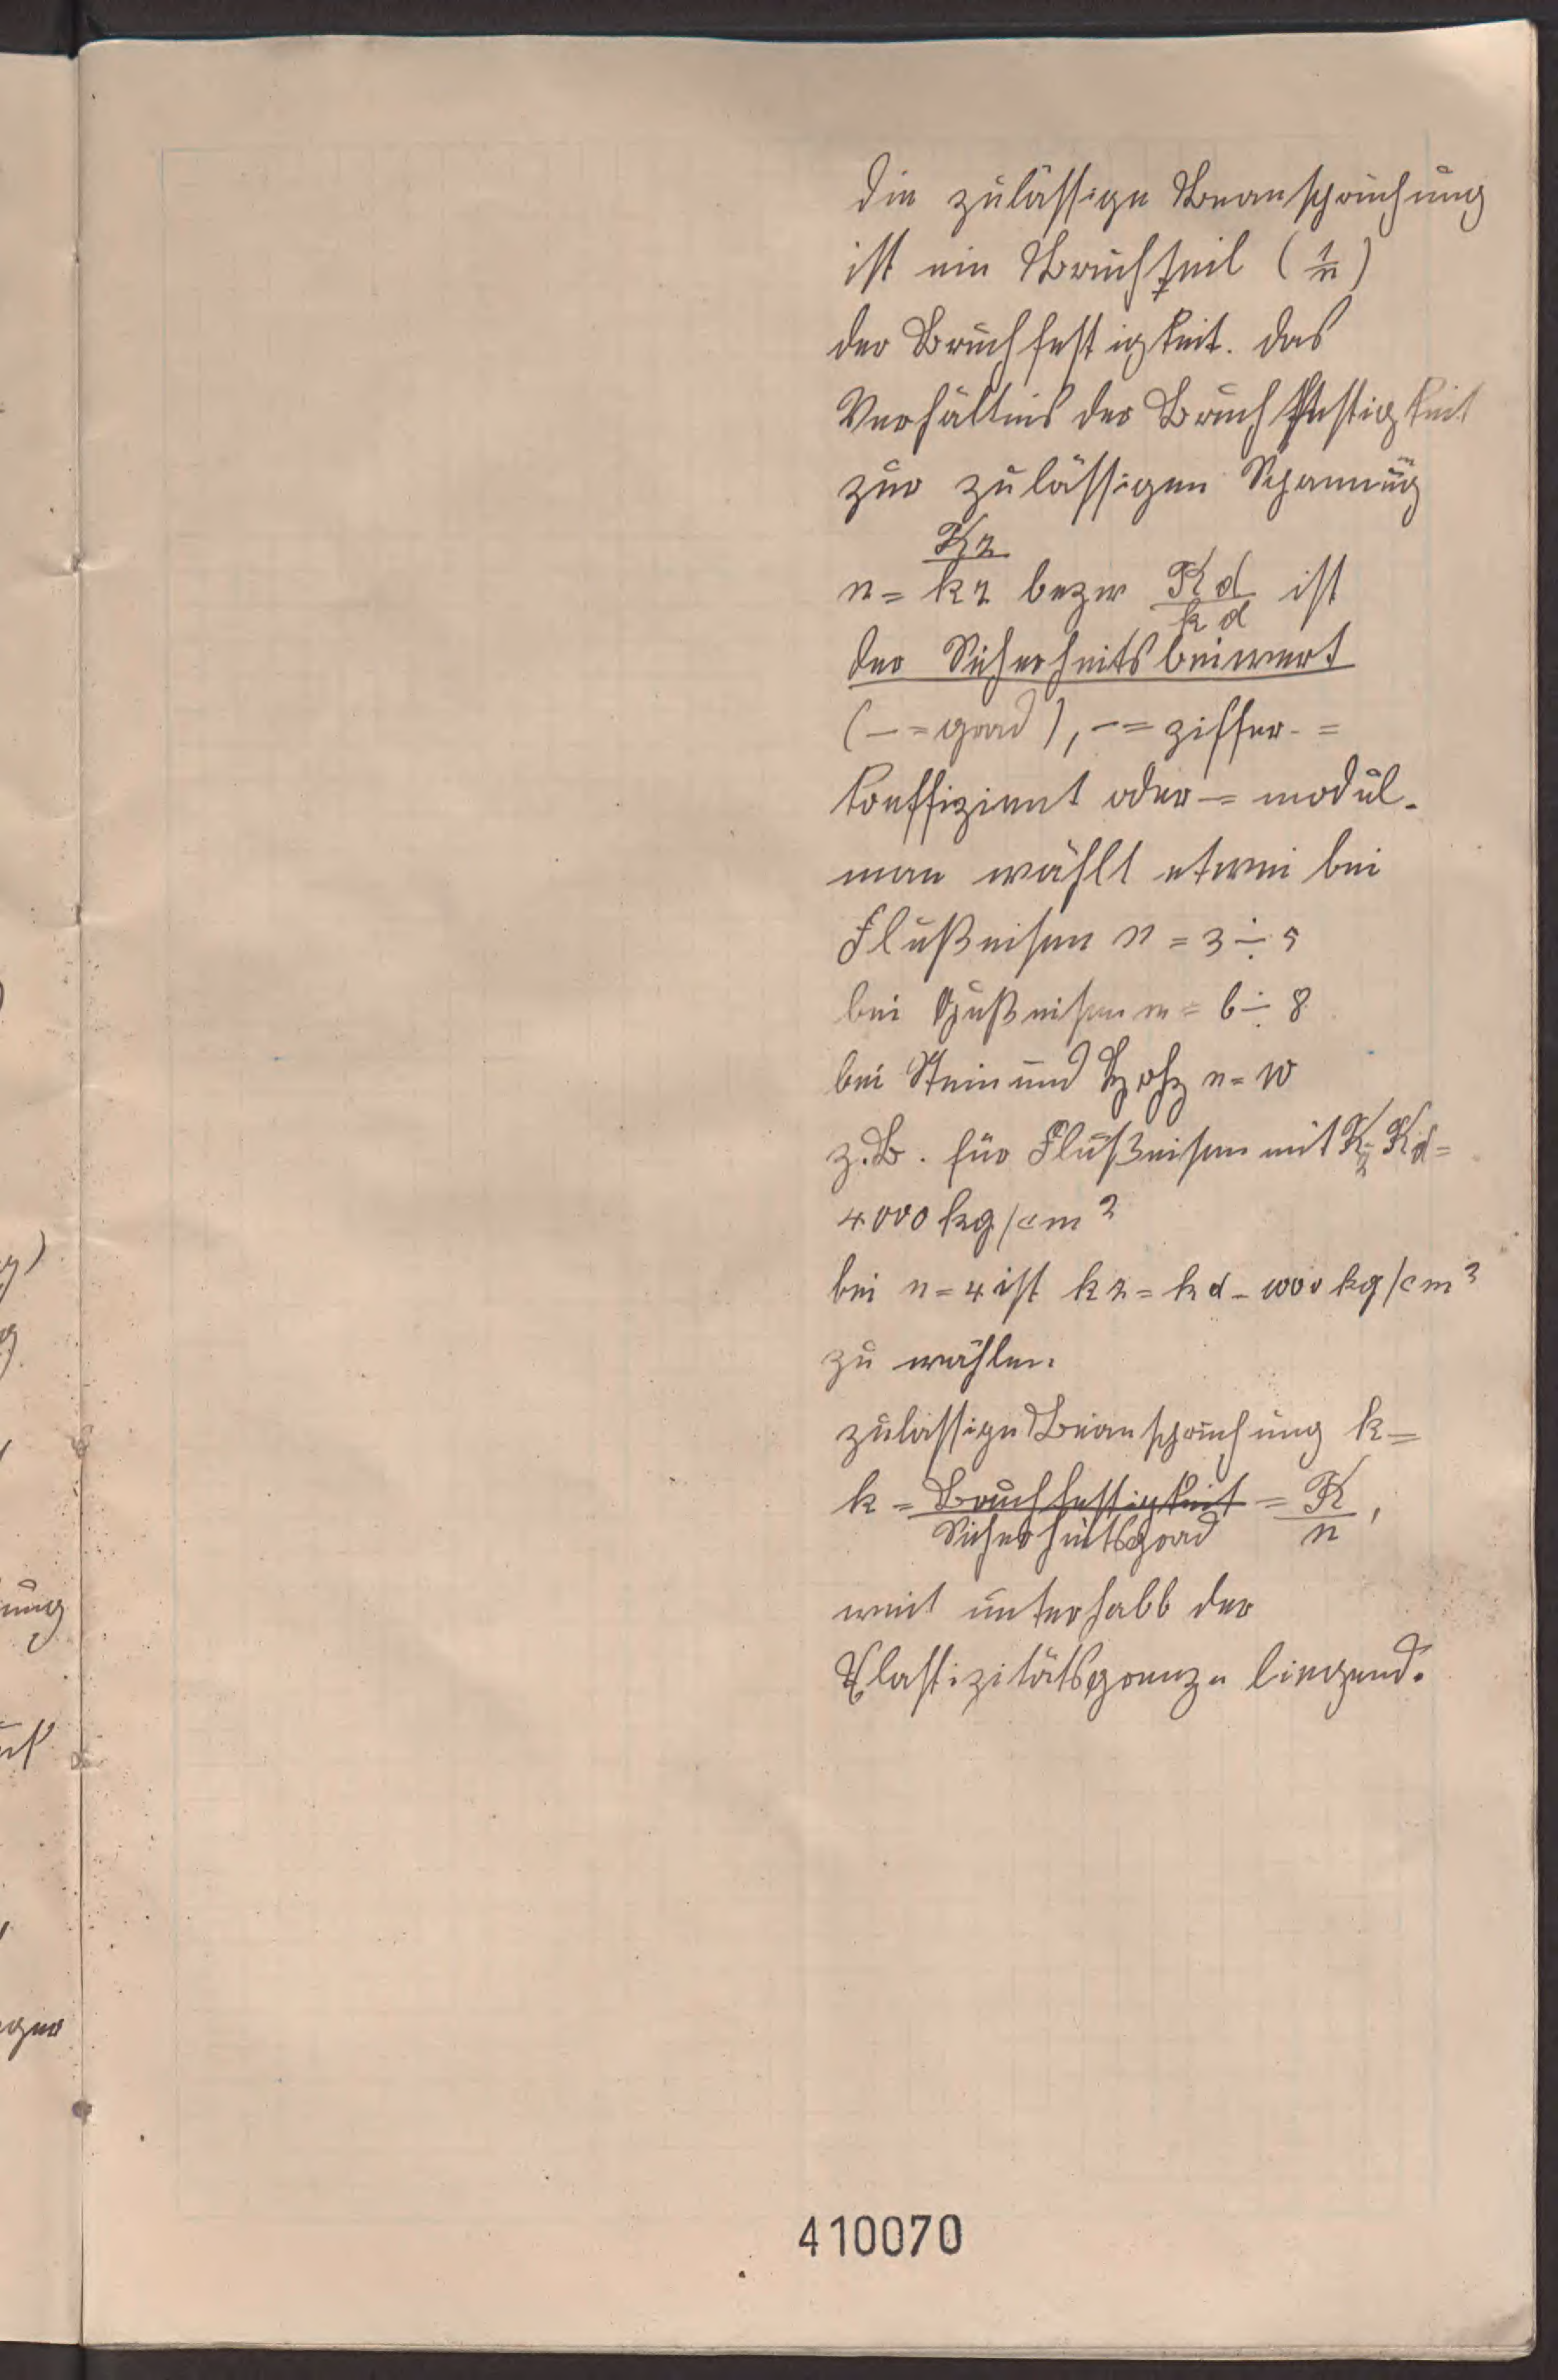 die zulässige Beanspruchung
ist ein Bruchteil (1/n)
der Bruchfestigkeit. das
Verhältnis der Bruchfestigkeit
zur zulässigen Spannung
n = Kz/kz bezw Kd/kd ist
der Sicherheitsbeiwert
(— = grad), — = ziffer - =
koeffizient oder — = modul.
man wählt etwei bei
Flußeisen n = 3 ÷ 5
bei Gußeisen n = 6 ÷ 8
bei Stein und Holz n = 10
z.B. für Flußeisen mit Kz = Kd =
4000 kg/cm²
bei n = 4 ist kz = kd = 1000 kg/cm²
zu wählen.
zulässige Beanspruchung k =
k = Bruchfestigkeit/Sicherheitsgrad = K/n,
weit unterhalb der
Elastizitätsgrenze liegend.
410070